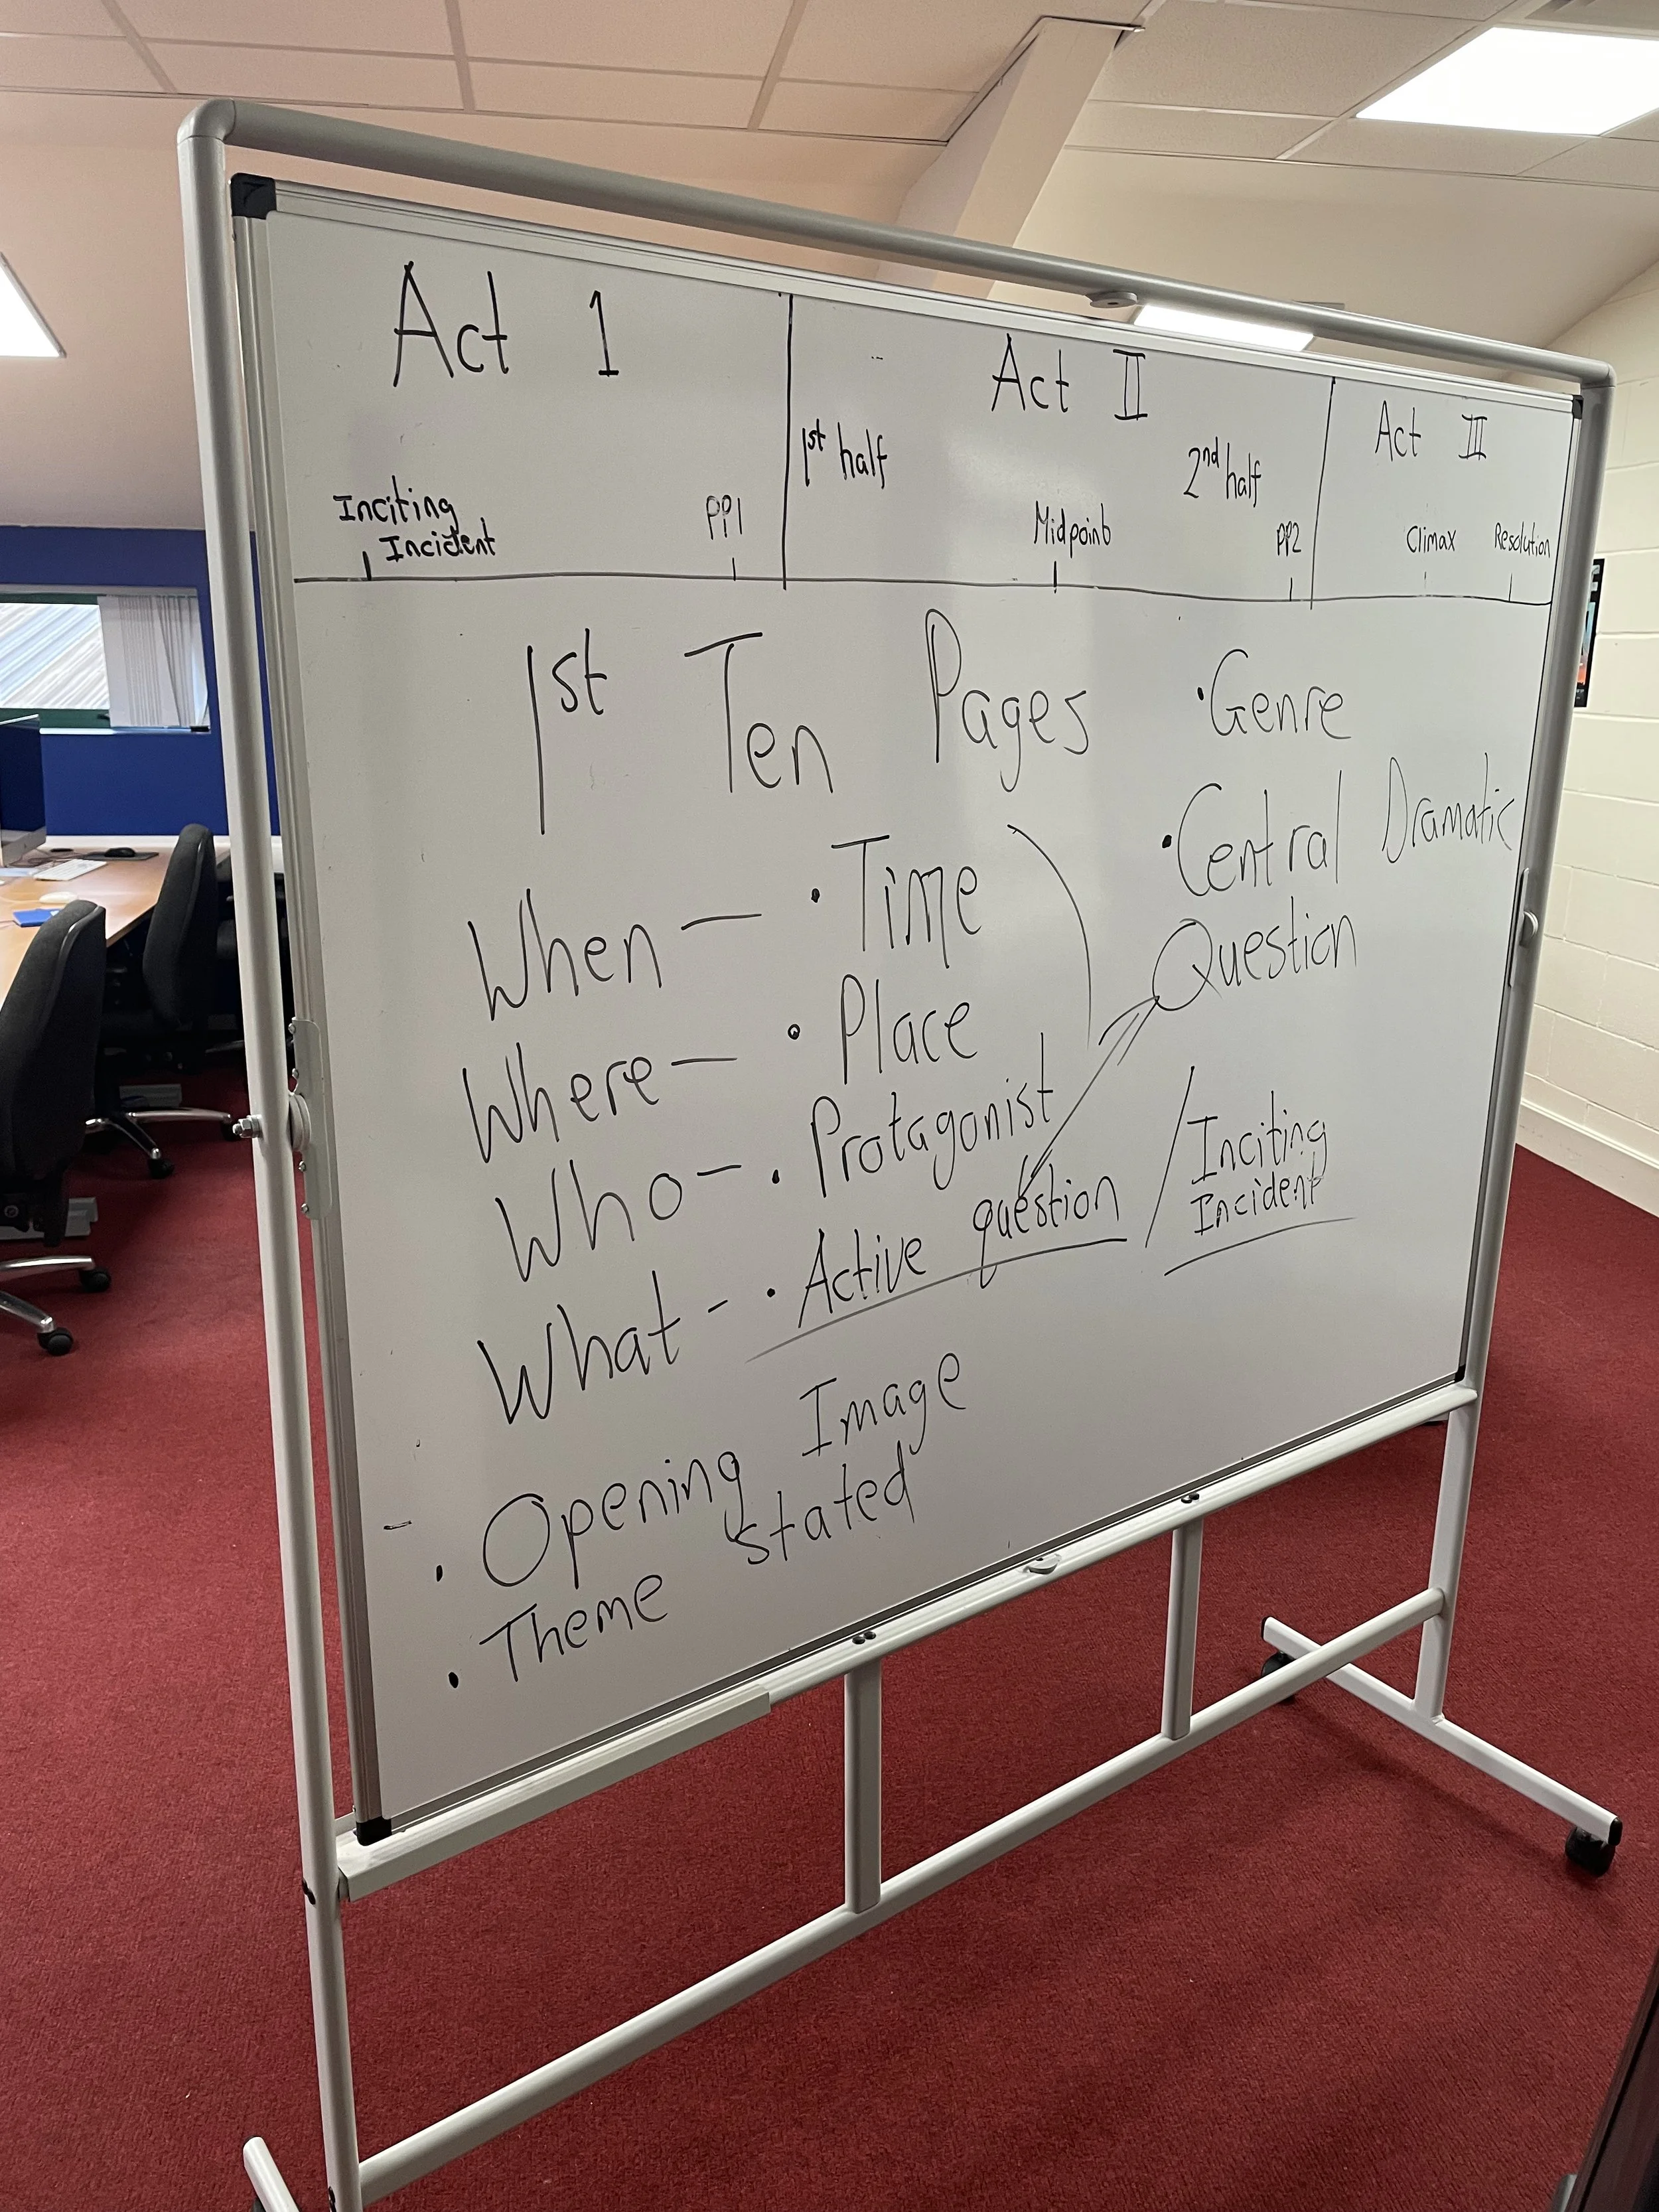 Act 1
Inciting
Incident
PP1
Act II
1st half
2nd half
Midpoint
PP2
Act III
Climax
Resolution
1st Ten Pages
When — • Time
Where — • Place
Who — • Protagonist
What - • Active question / Inciting
Incident
• Genre
• Central Dramatic
Question
- • Opening Image
• Theme stated